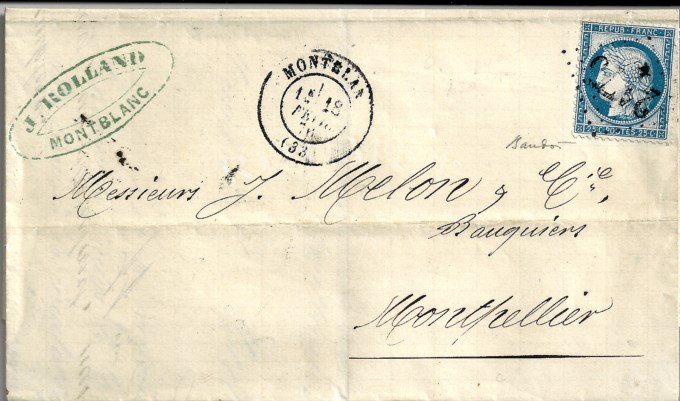 J. ROLLAND
MONTBLANC
MONTBLAN
18
FEVR
(33)
REPUB · FRANC ·
25 C · POSTES · 25 C
Messieurs J. Melon & Cie.
Banquiers
Montpellier